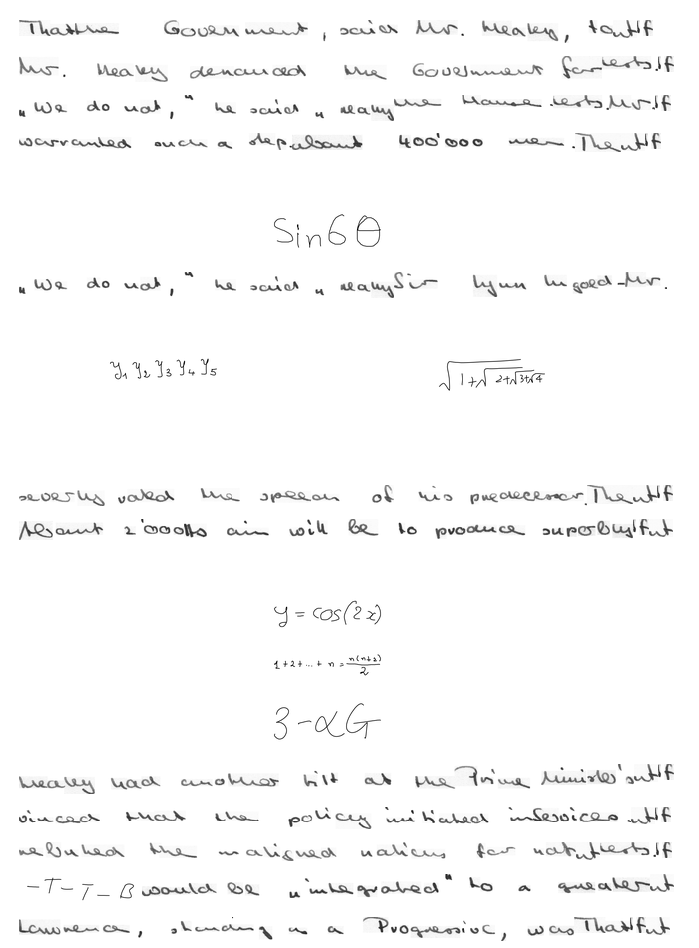 That the Government, said Mr. Healey,
Mr. Healey denounced the Government for tests. If
"We do not," he said "really the House tests. Mr. If
warranted such a step. about 400'000 men. The
Sin6θ
"We do not," he said "really Sir Lynn Ungoed-Mr.
y₁ y₂ y₃ y₄ y₅ √(1+√(2+√(3+√4)))
severly rated the speech of his predecessor. The
About 2'000 aim will be to produce
y = cos(2x)
1+2+...+n = n(n+2)/2
3-αG
Healey had another tilt at the Prime Minister's
vinced that the policy initiated in Services.
rebuked the maligned nations for not tests. If
-T-T-B would be "integrated" to a greater
Lawrence, standing as a Progressive, was That